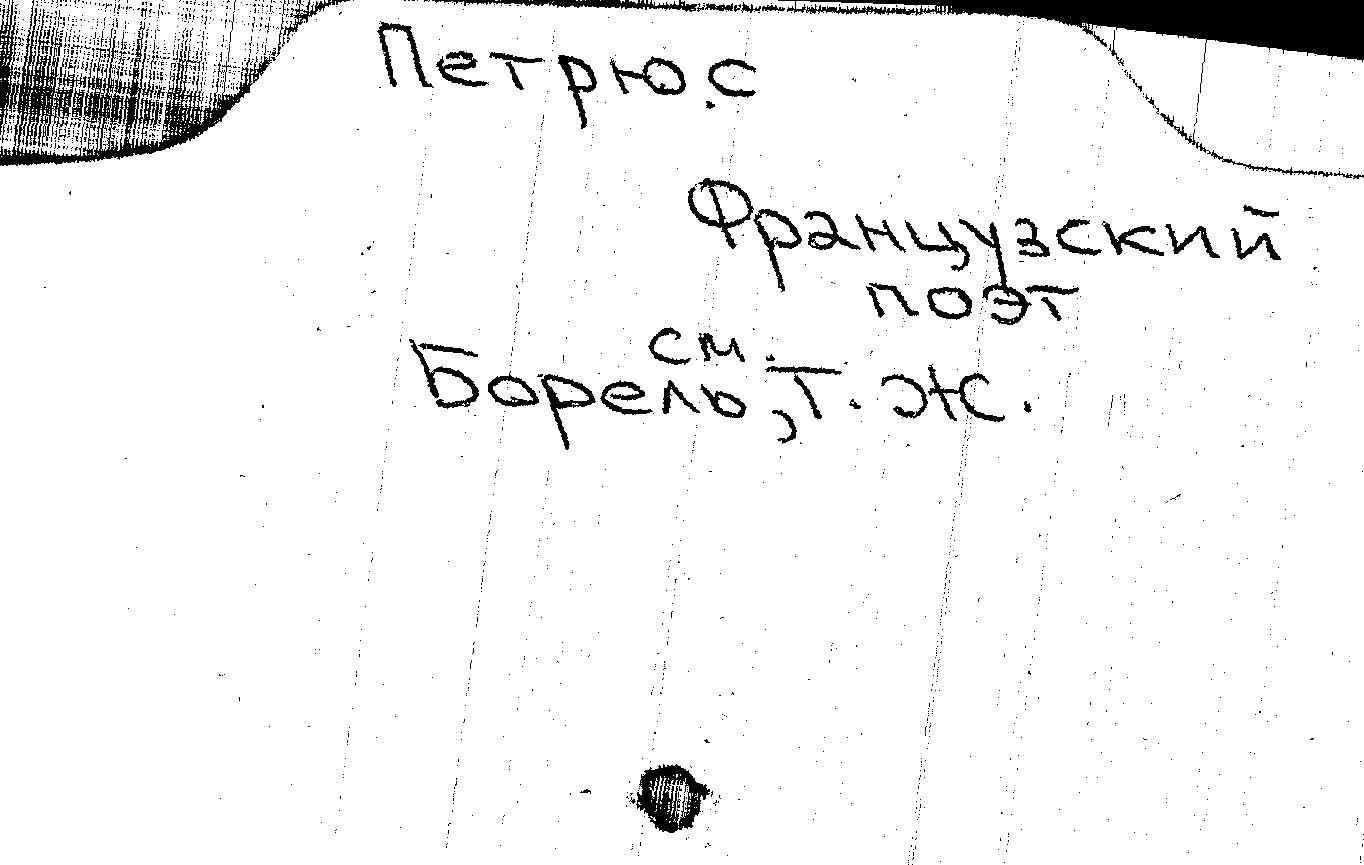 Петрюс
Французский
поэт
см.
Борель, Т. Ж.